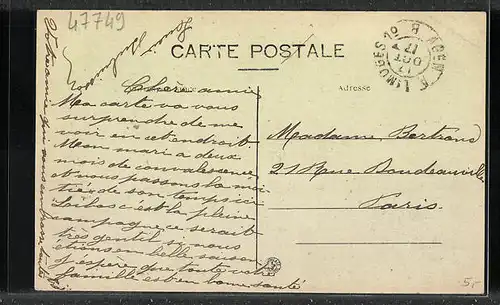 47749
CARTE POSTALE
Adresse
Chère amie
Ma carte va vous
surprendre de me
voir en cet endroit
Mon mari a deux
mois de convalescence
et nous passons la moi
tiée de son temps ici
hélas c'est la pleine
campagne ce serait
très gentil si nous
étions en belle saison
J'espère que toute votre
famille est en bonne santé
Madame Bertrand
21 Rue Boudeauville
Paris.
AGEN A LIMOGES
OCT
17
5,-